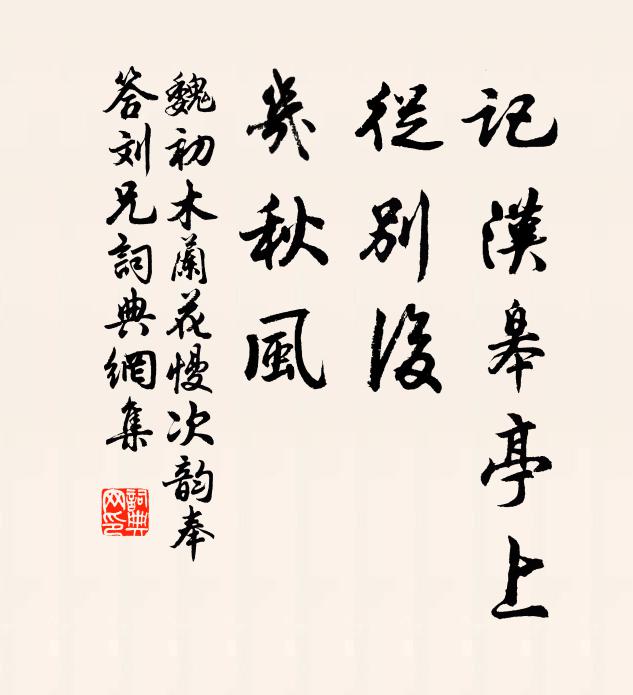 記漢皋亭上
從別後
幾秋風
魏初木蘭花慢次韵奉
答刘兄詞典網集
詞典网印